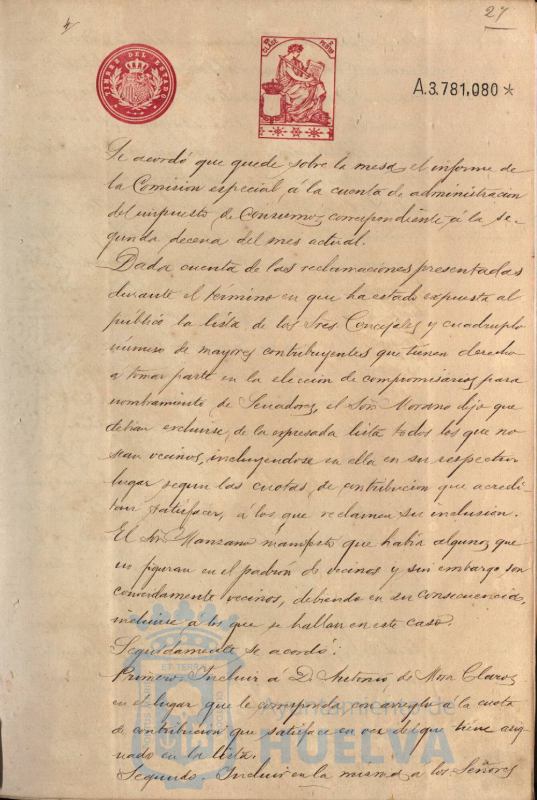 27
TIMBRE DEL ESTADO
A.3.781,080*
Se acordó que quede sobre la mesa el informe de
la Comision especial á la cuenta de administracion
del impuesto de Consumos correspondiente á la se-
gunda decena del mes actual.
Dada cuenta de las reclamaciones presentadas
durante el término en que ha estado expuesta al
público la lista de los Sres Concejales y cuadruplo
número de mayores contribuyentes que tienen derecho
a tomar parte en la eleccion de compromisarios para
nombramiento de Senadores, el Señor Morano dijo que
debian excluirse de la expresada lista todos los que no
sean vecinos, incluyendose en ella en su respectivo
lugar segun las cuotas de contribucion que acredi-
tan satisfacer, á los que reclaman su inclusion.
El Señor Manzano manifestó que habia algunos que
no figuran en el padrón de vecinos y sin embargo son
conocidamente vecinos, debiendo en su consecuencia,
incluirse a los que se hallan en este caso.
Seguidamente se acordó:
Primero. Incluir á D. Antonio de Mora Claros
en el lugar que le corresponda con arreglo á la cuota
de contribucion que satisface en vez del que tiene asig-
nado en la lista.
Segundo. Incluir en la misma a los Señores
Ayuntamiento de
HUELVA